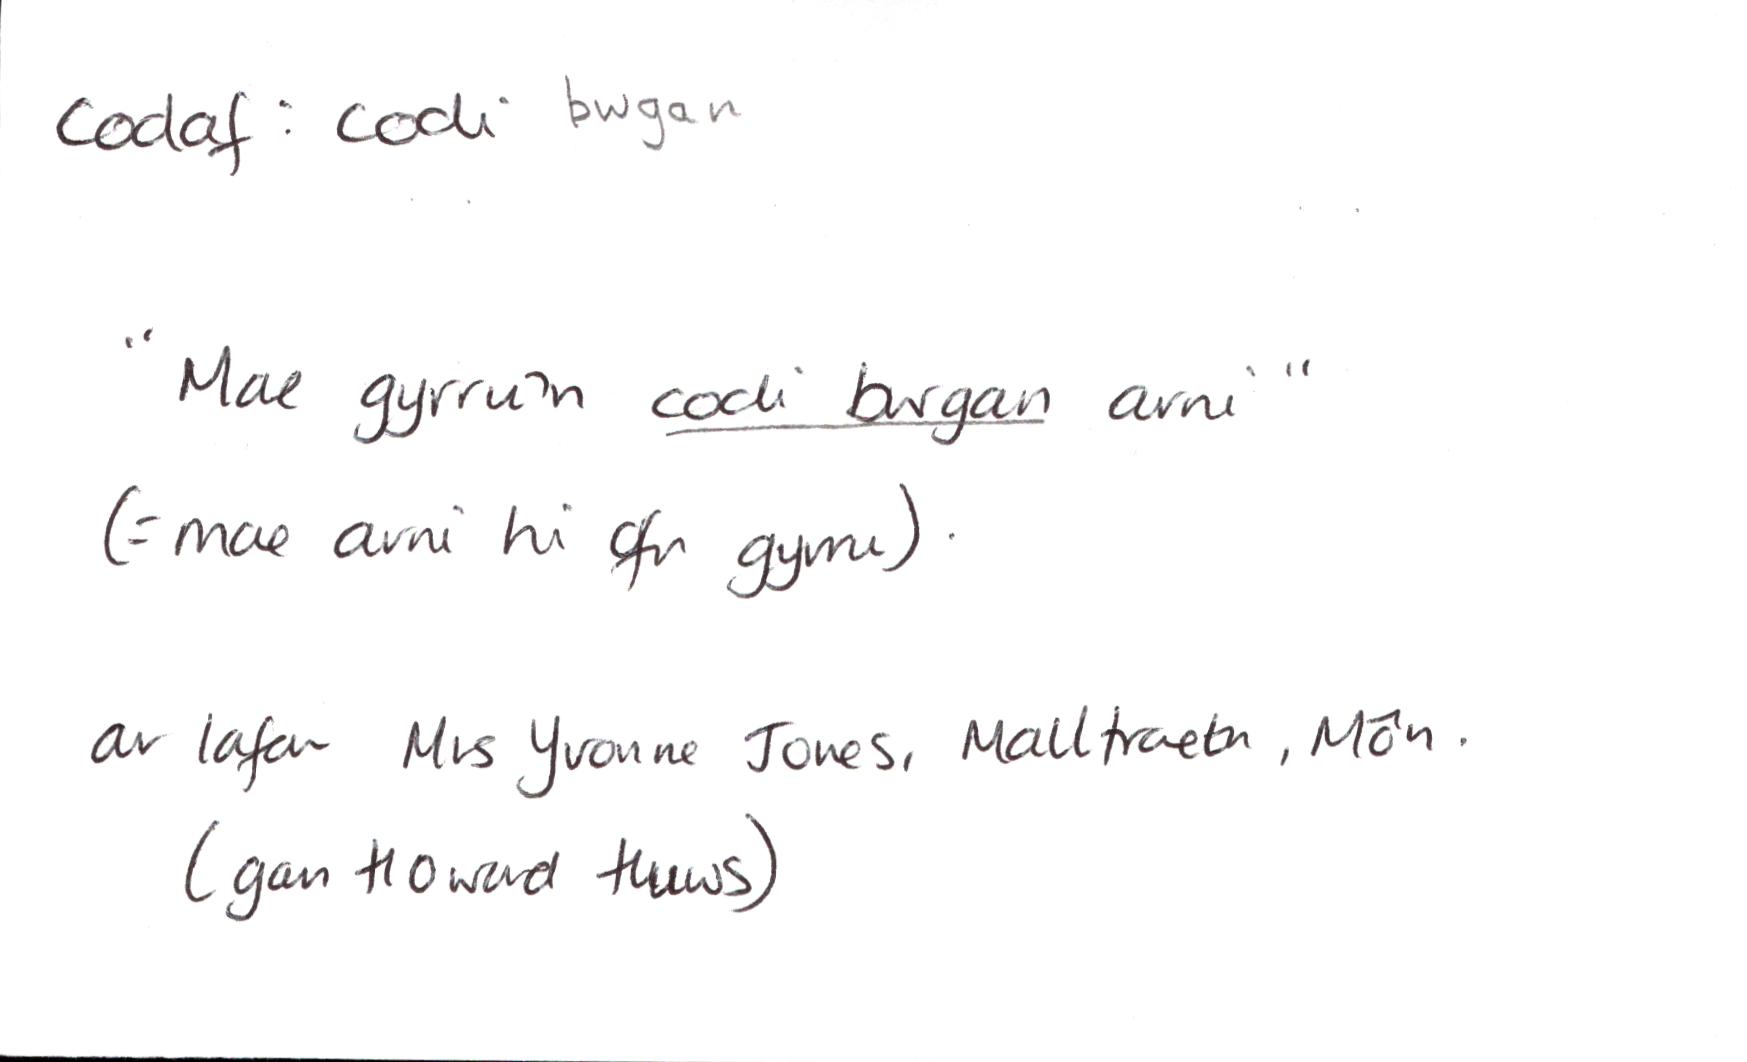 Codaf: codi bwgan
"Mae gyrru'n codi bwgan arni"
(= mae arni hi ofn gyrru).
ar lafar Mrs Yvonne Jones, Malltraeth, Môn.
(gan Howard Huws)